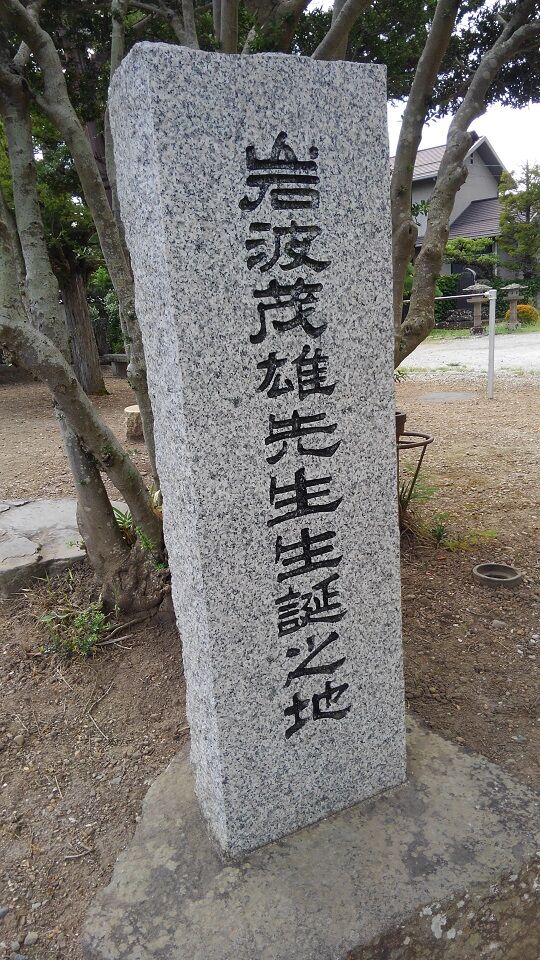 岩波茂雄先生生誕之地